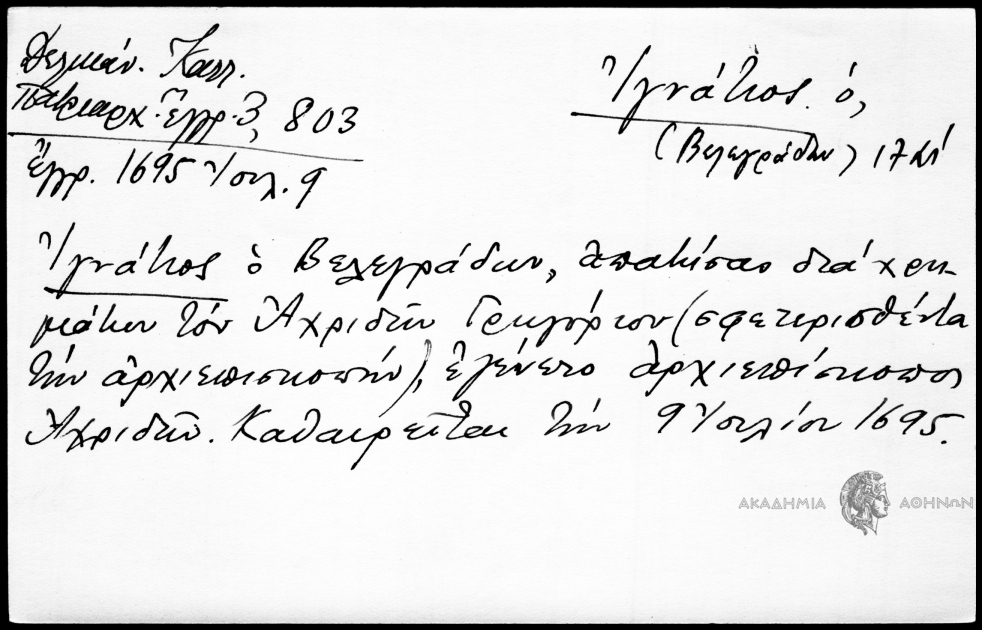 Δελικάν. Καλλ.
Πατριαρχ. Ἔγγρ. 3, 803
ἔγγρ. 1695 Ἰουλ. 9
Ἰγνάτιος ὁ,
(Βελεγράδων) 17
Ἰγνάτιος ὁ Βελεγράδων, ἀπατήσας διά χρη-
μάτων τόν Ἀχριδῶν Γρηγόριον (σφετερισθέντα
τήν ἀρχιεπισκοπήν), ἐγένετο ἀρχιεπίσκοπος
Ἀχριδῶν. Καθαιρεῖται τήν 9 Ἰουλίου 1695.
ΑΚΑΔΗΜΙΑ ΑΘΗΝΩΝ